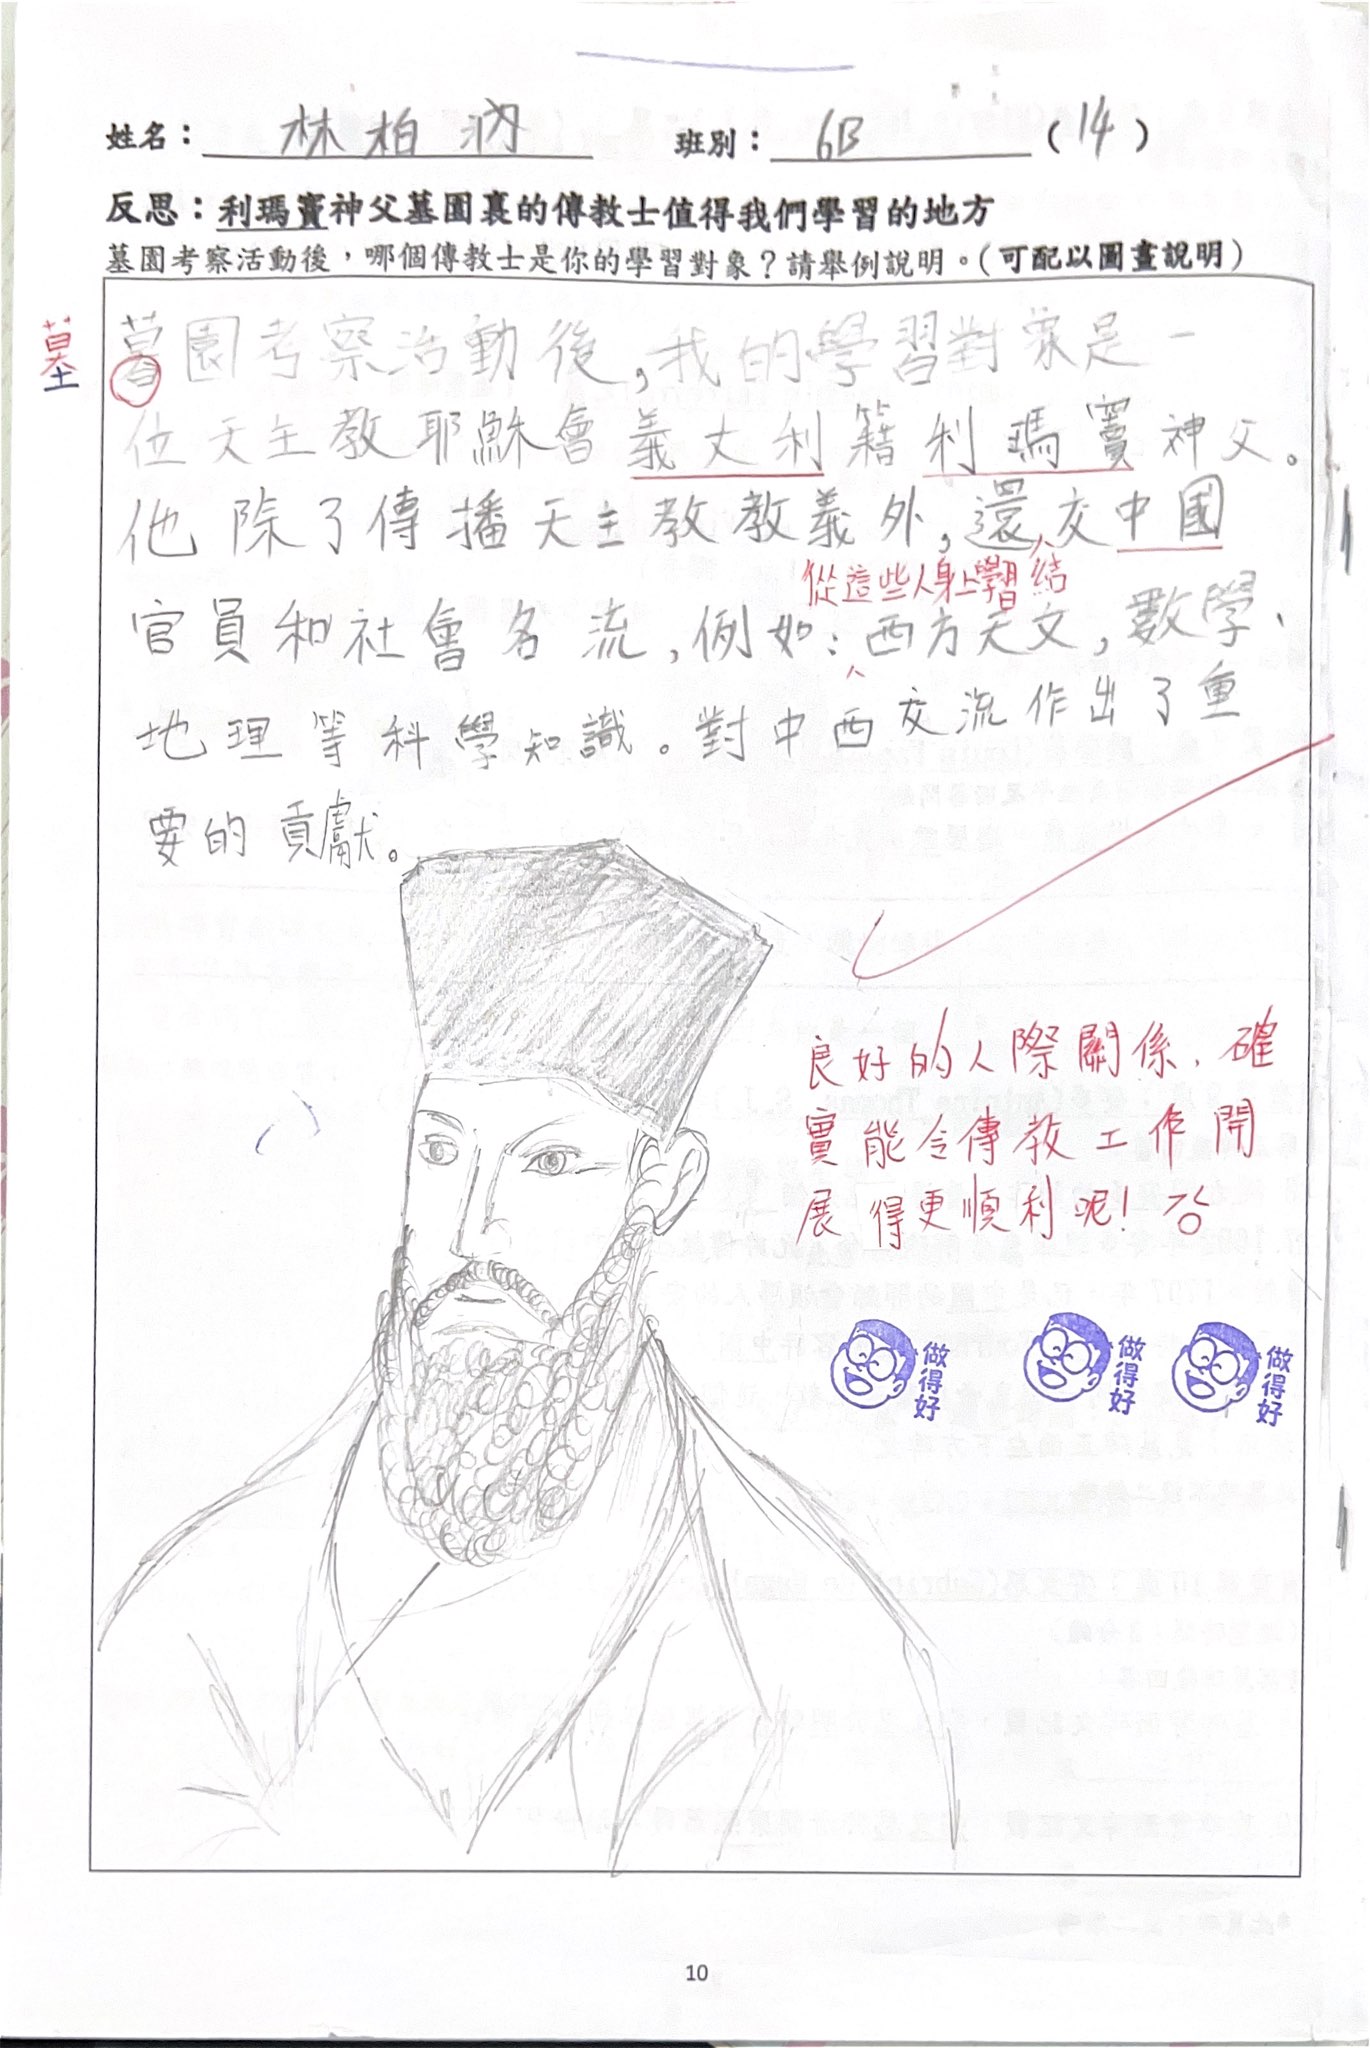 姓名： 林柏汭 班別： 6B （14）
反思：利瑪竇神父墓園裏的傳教士值得我們學習的地方
墓園考察活動後，哪個傳教士是你的學習對象？請舉例說明。（可配以圖畫說明）
墓
墓園考察活動後，我的學習對象是一
位天主教耶穌會義大利籍利瑪竇神父。
他除了傳播天主教教義外，還交中國
從這些人身上學習 結
官員和社會名流，例如：西方天文，數學、
地理等科學知識。對中西交流作出了重
要的貢獻。
良好的人際關係，確
實能令傳教工作開
展得更順利呢！
做得好 做得好 做得好
10